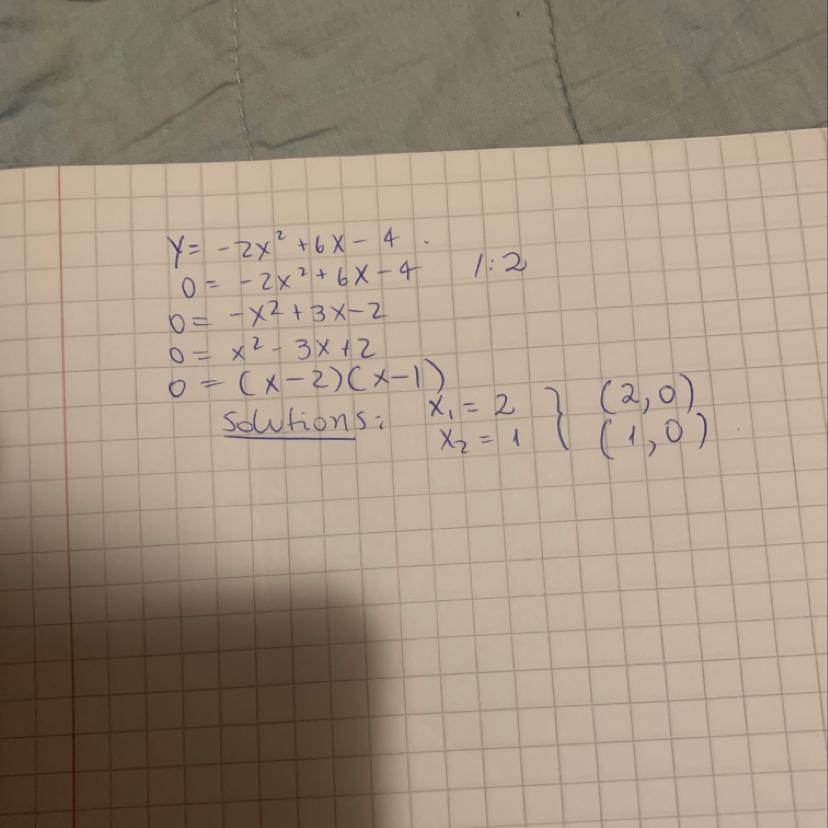 y = -2x² + 6x - 4.
0 = -2x² + 6x - 4 /:2
0 = -x² + 3x - 2
0 = x² - 3x + 2
0 = (x-2)(x-1)
Solutions: x₁ = 2 } (2,0)
x₂ = 1 (1,0).